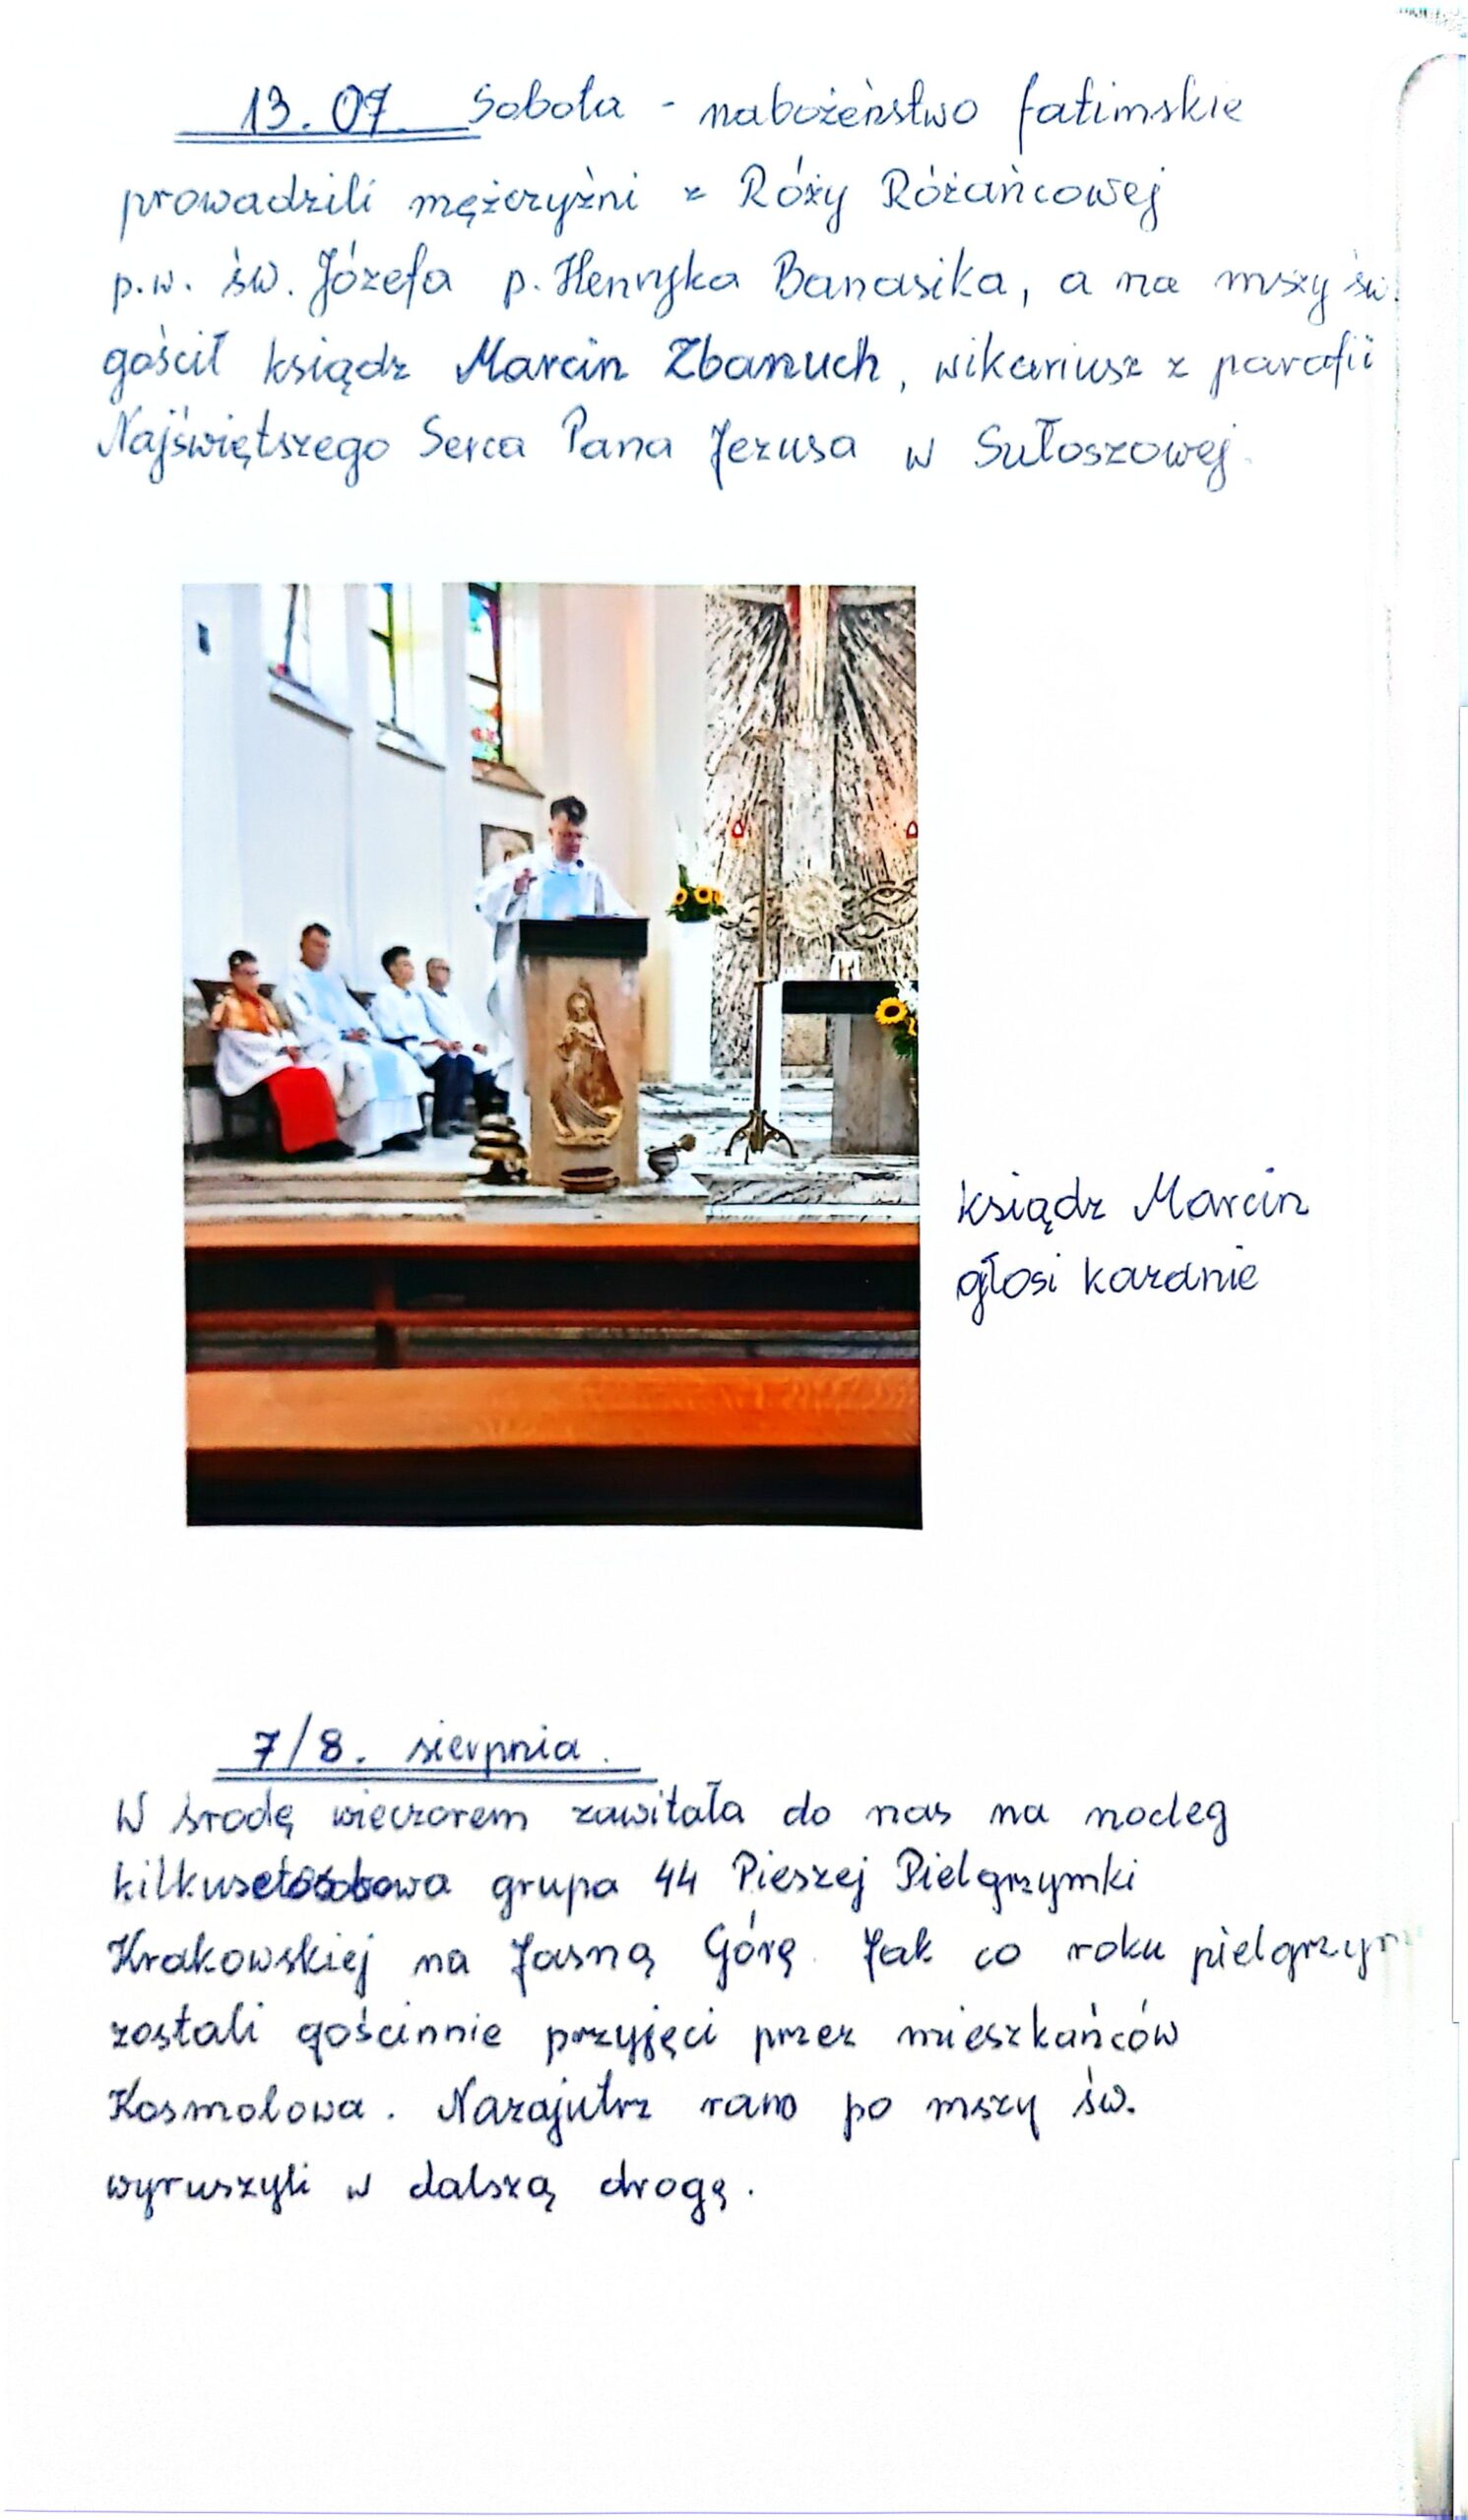 13.07. Sobota - nabożeństwo fatimskie
prowadzili mężczyźni z Róży Różańcowej
p.w. św. Józefa p. Henryka Banasika, a na mszy św.
gościł ksiądz Marcin Zbanuch, wikariusz z parafii
Najświętszego Serca Pana Jezusa w Sułoszowej.
ksiądz Marcin
głosi kazanie
7/8. sierpnia.
W środę wieczorem zawitała do nas na nocleg
kilkusetosobowa grupa 44 Pieszej Pielgrzymki
Krakowskiej na Jasną Górę. Jak co roku
zostali gościnnie przyjęci przez mieszkańców
Kosmolowa. Nazajutrz rano po mszy św.
wyruszyli w dalszą drogę.